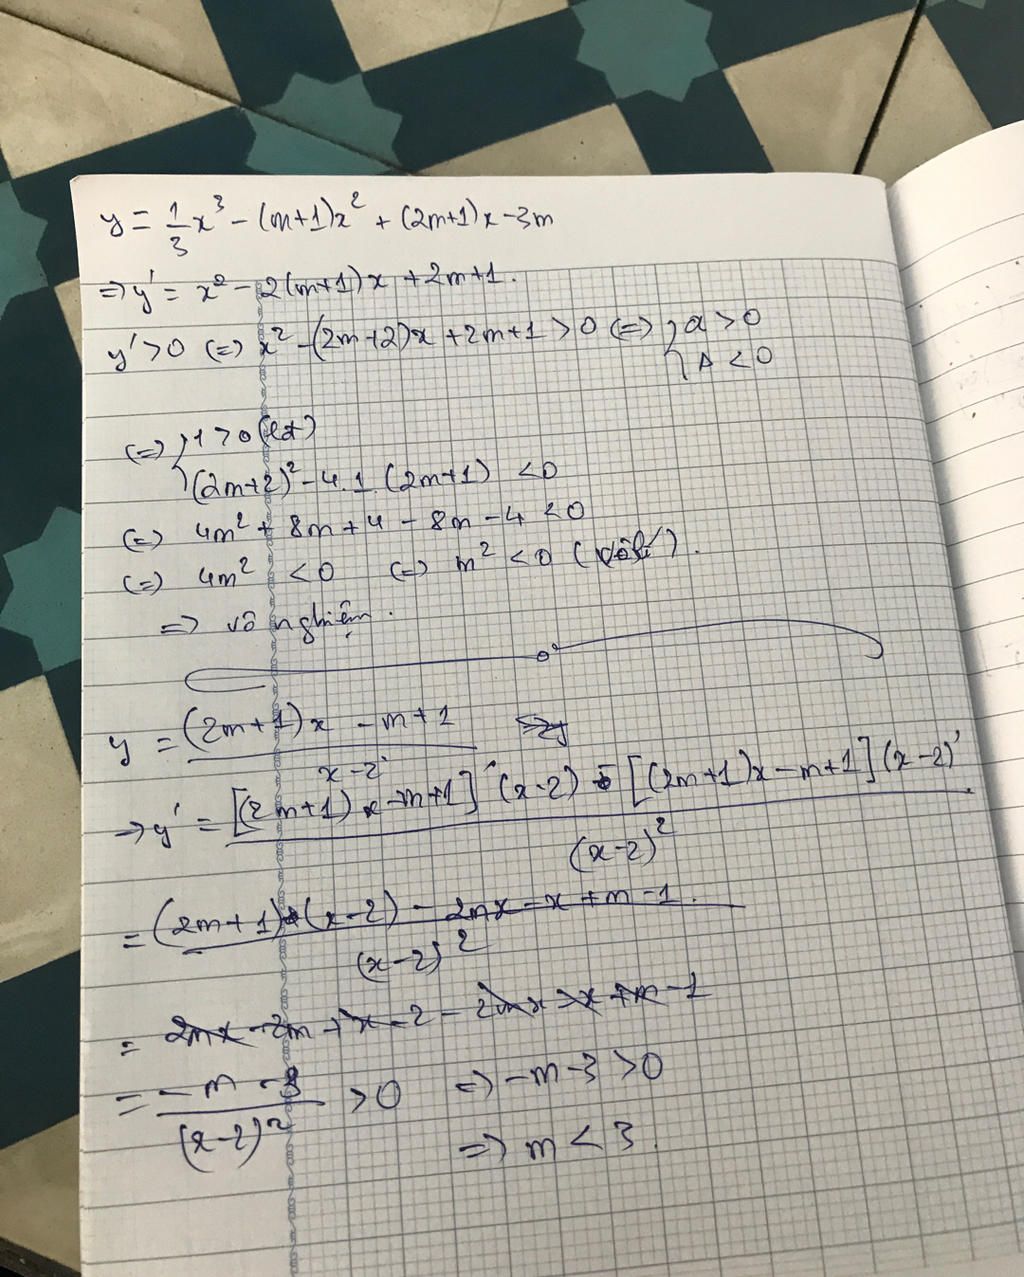 y = 1/3 x³ - (m+1)x² + (2m+1)x - 3m
=> y' = x² - 2(m+1)x + 2m+1.
y' > 0 (=) x² - (2m+2)x + 2m+1 > 0 (=) { a > 0
Δ < 0
(=) { 1 > 0 (lđ)
(2m+2)² - 4.1.(2m+1) < 0
(=) 4m² + 8m + 4 - 8m - 4 < 0
(=) 4m² < 0 (=) m² < 0 (vô lí).
=> vô nghiệm.
y = ((2m+1)x - m + 1)/(x-2)
=> y' = ([(2m+1)x - m+1]'(x-2) - [(2m+1)x - m+1](x-2)')/(x-2)²
= ((2m+1)(x-2) - 2mx - x + m - 1.)/(x-2)²
= 2mx - 2m + x - 2 - 2mx - x + m - 1
= (-m - 3)/(x-2)² > 0 => -m - 3 > 0
=> m < 3.